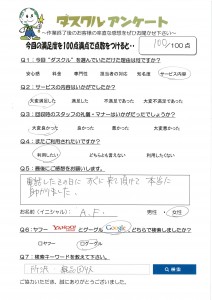 ダスクル アンケート
～作業終了後のお客様の率直な感想をぜひお聞かせ下さい～
今日の満足度を100点満点で点数をつけると・・ 100/100点
Q1:今回「ダスクル」を選んでいただけた理由は何ですか?
安心感 料金 専門性 担当者の対応 知名度 サービス内容
Q2:サービスの内容はいかがでしたか?
大変満足した 満足した 不満足であった 大変不満足であった
Q3:回収時のスタッフの礼儀・マナーはいかがだったでしょうか?
大変良かった 良かった 悪かった 大変悪かった
Q4:またご利用されたいですか?
利用したい どちらとも言えない 利用したくない
Q5:最後にご感想をお聞かせください。
電話したその日に すぐに来て頂けて 本当に
助かりました。
お名前(イニシャル) A.F. 男性・女性
Q6:ヤフー YAHOO! とグーグル Google、どちらで検索しましたか?
ヤフー グーグル
Q7:検索キーワードを教えて下さい。
所沢 粗品回収 検索
ご協力いただき、誠にありがとうございました。